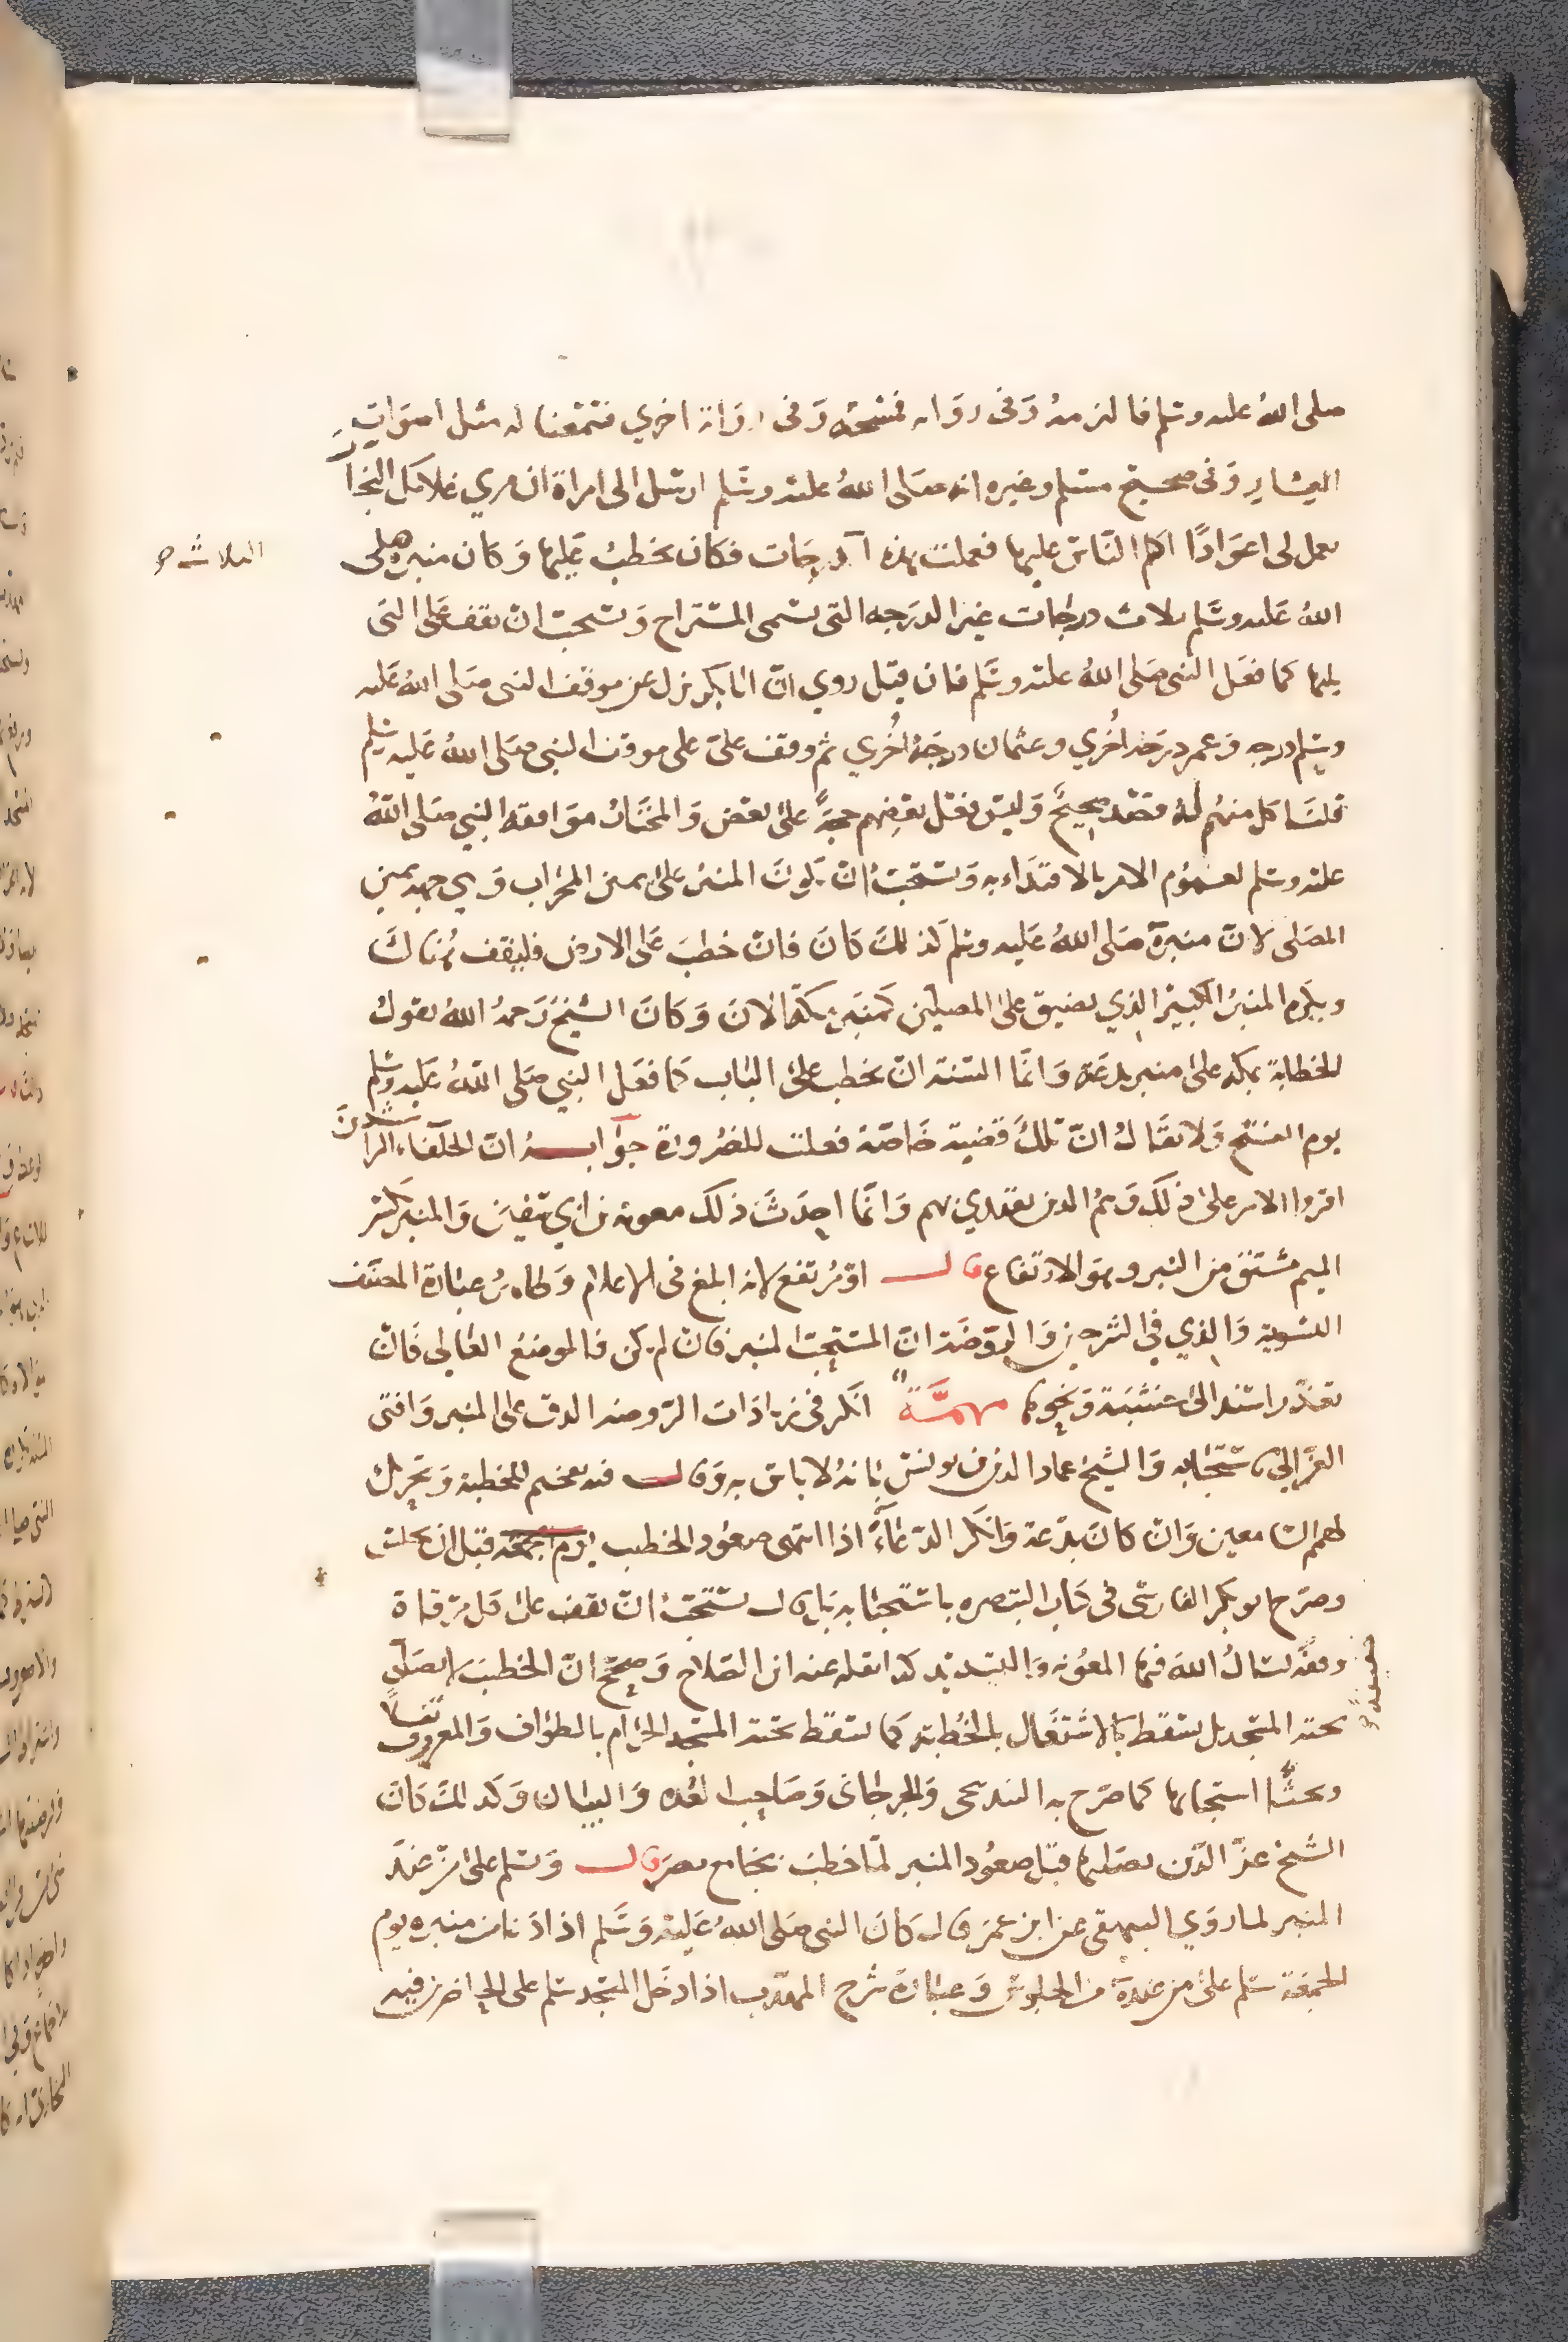 صلى الله عليه وسلم فالتزمه وفي رواية فمسحه وفي رواية اخرى فسمعنا له مثل اصوات
العشار وفي صحيح مسلم وغيره انه صلى الله عليه وسلم ارسل الى امراة ان مري غلامك النجار
يعمل لي اعوادًا اكلم الناس عليها فعملت هذه الدرجات فكان يخطب عليها وكان منبره صلى
الثلاث صح
الله عليه وسلم ثلاث درجات غير الدرجه التي تسمى المستراح ويستحب ان يقف على التي
يليها كما فعل النبي صلى الله عليه وسلم فان قيل روي ان ابا بكر نزل عن موقف النبي صلى الله عليه
وسلم درجه وعمر درجة اخري وعثمان درجة اخري ثم وقف علي على موقف النبي صلى الله عليه وسلم
قلنا كل منهم له قصد صحيح وليس فعل بعضهم حجة على بعض والمختار موافقه النبي صلى الله
عليه وسلم لعموم الامر بالاقتداء به ويستحب ان يكون المنبر على يمين المحراب وهي جهة يمين
المصلى لان منبره صلى الله عليه وسلم كذلك كان فان خطب على الارض فليقف هناك
ويكره المنبر الكبير الذي يضيق على المصلين كمنبر مكة الان وكان الشيخ رحمه الله يقول
الخطابة بمكة على منبر بدعة وانما السنة ان يخطب على الباب كما فعل النبي صلى الله عليه وسلم
يوم الفتح ولا يقال ان تلك قضية خاصة فعلت للضرورة جوابه ان الخلفاء الراشدين
اقروا الامر على ذلك وهم الذين يقتدى بهم وانما احدث ذلك معوية بن ابي سفين والمنبر بكسر
الميم مشتق من النبر وهو الارتفاع قال او مرتفع لانه ابلغ في الاعلام وظاهر عبارة المصنف
التسوية والذي في الشرحين والروضة ان المستحب المنبر فان لم يكن فالموضع العالي فان
تعذر استند الى خشبة ونحوها مهمة انكر في زيادات الروضة الدق على المنبر وافتى
الغزالي باستحبابه والشيخ عماد الدين بن يونس بانه لا باس به وقال فيه تفخيم للخطبة وتحريك
لهمم السامعين وان كان بدعة وانكر الدعاء اذا انتهى صعود الخطيب يوم الجمعة قبل ان يجلس
وصرح ابو بكر الفارسي في كتاب التبصره باستحبابه بان قال يستحب ان يقف على كل مرقاة
وقفة يسال الله فيها المعونه والتسديد كذا نقله عنه ابن الصلاح وصحح ان الخطيب لا يصلي
تحية المسجد بل يسقط بالاشتغال بالخطابة كما يسقط تحية المسجد الحرام بالطواف والمعروف نقلا
وبحثًا استحبابها كما صرح به البندنيجي والجرجاني وصاحبا العده والبيان وكذلك كان
الشيخ عز الدين يصليها قبل صعود المنبر لما خطب بجامع مصر قال وسلم على من عند
المنبر لما روي البيهقي عن ابن عمر قال كان النبي صلى الله عليه وسلم اذا دنا من منبره يوم
الجمعة سلم على من عنده من الجلوس وعبارة شرح المهذب اذا دخل المسجد سلم على الحاضرين فيه